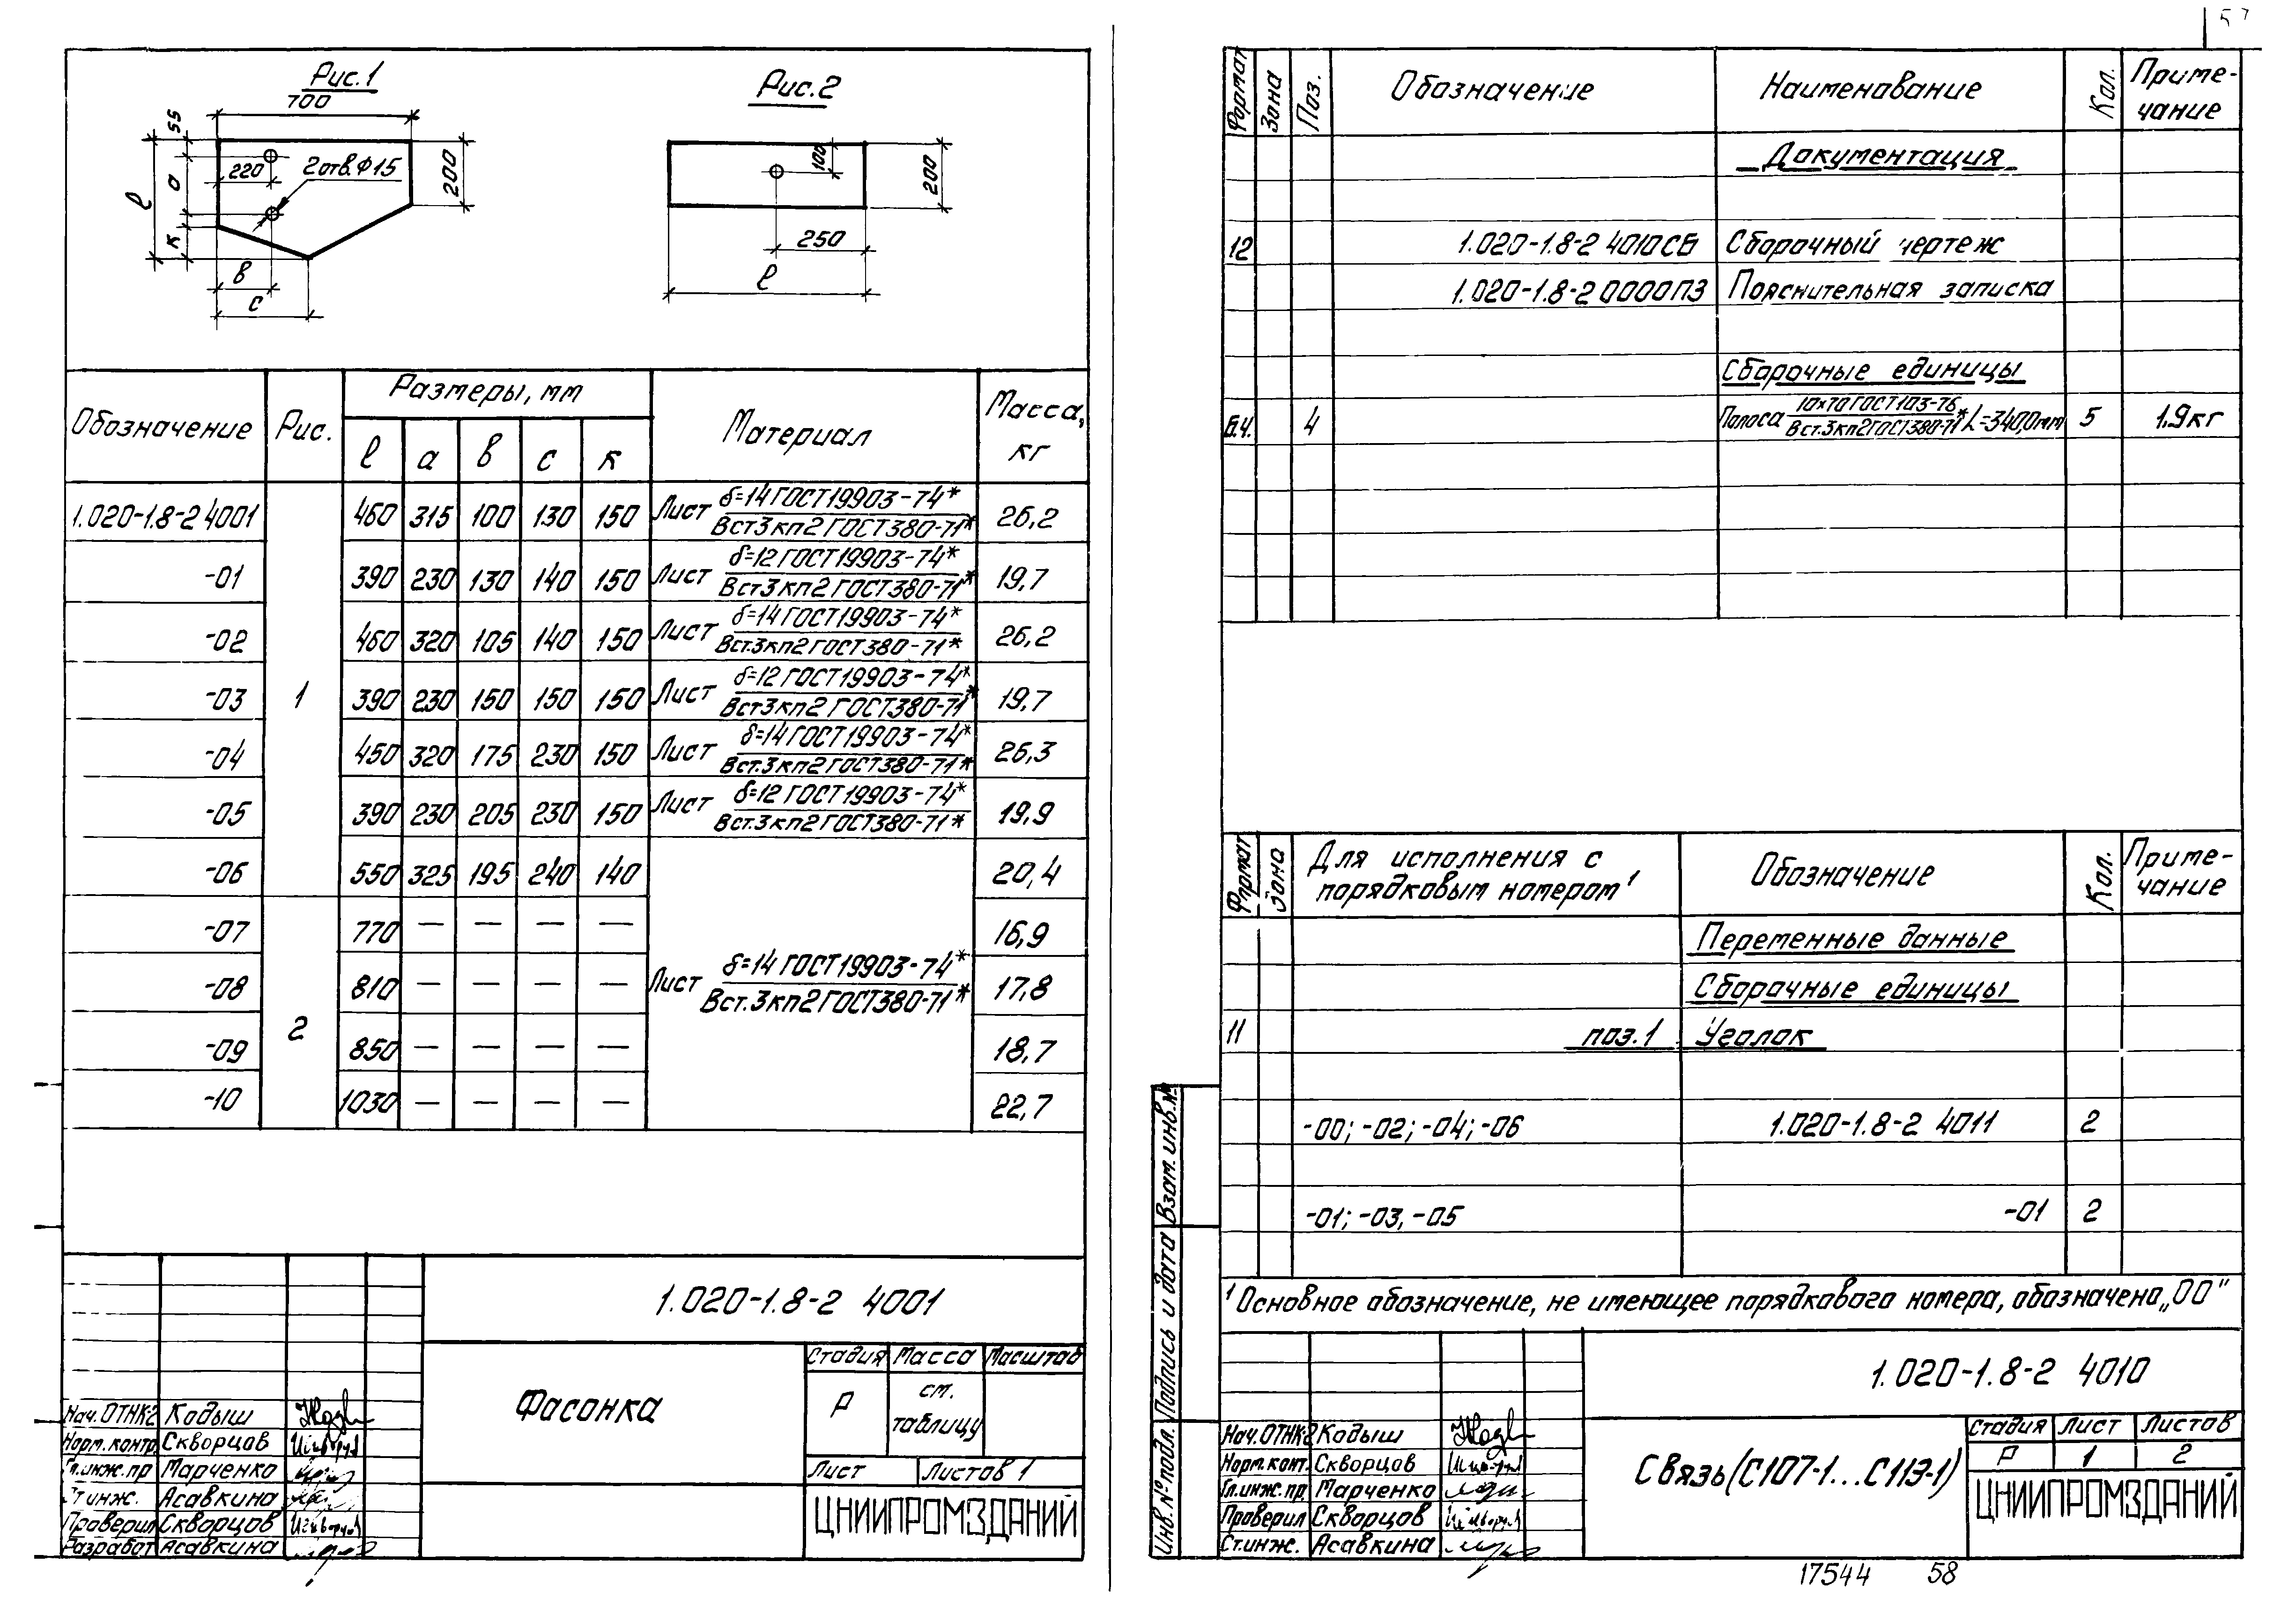 Рис.1
700
55
а
к
l
220
2отв.Ф15
200
в
с
Рис.2
100
200
250
l
Обозначение Рис. Размеры, мм Материал Масса, кг
l а в с к
1.020-1.8-2 4001 1 460 315 100 130 150 Лист δ=14 ГОСТ19903-74* / Вст3кп2 ГОСТ380-71* 26,2
-01 390 230 130 140 150 Лист δ=12 ГОСТ19903-74* / Вст3кп2 ГОСТ380-71* 19,7
-02 460 320 105 140 150 Лист δ=14 ГОСТ19903-74* / Вст.3кп2 ГОСТ380-71* 26,2
-03 390 230 150 150 150 Лист δ=12 ГОСТ19903-74* / Вст3кп2 ГОСТ380-71* 19,7
-04 450 320 175 230 150 Лист δ=14 ГОСТ19903-74* / Вст.3кп2 ГОСТ380-71* 26,3
-05 390 230 205 230 150 Лист δ=12 ГОСТ19903-74* / Вст.3кп2 ГОСТ380-71* 19,9
-06 550 325 195 240 140 20,4
-07 2 770 — — — — Лист δ=14 ГОСТ19903-74* / Вст.3кп2 ГОСТ380-71* 16,9
-08 810 — — — — 17,8
-09 850 — — — — 18,7
-10 1030 — — — — 22,7
1.020-1.8-2 4001
Фасонка
Стадия Масса Масштаб
Р см. таблицу
Лист Листов 1
ЦНИИПРОМЗДАНИЙ
Нач.ОТНК-2 Кодыш
Норм.контр. Скворцов
Гл.инж.пр Марченко
Ст.инж. Асавкина
Проверил Скворцов
Разработ. Асавкина
Формат Зона Поз. Обозначение Наименование Кол. Приме-
чание
Документация
12 1.020-1.8-2 4010СБ Сборочный чертеж
1.020-1.8-2 0000ПЗ Пояснительная записка
Сборочные единицы
Б.Ч. 4 Полоса 10×70 ГОСТ103-76* / Вст.3кп2 ГОСТ380-71* L=340,0мм 5 1,9кг
Формат Зона Для исполнения с Обозначение Кол. Приме-
порядковым номером¹ чание
Переменные данные
Сборочные единицы
11 поз.1 Уголок
-00; -02; -04; -06 1.020-1.8-2 4011 2
-01; -03, -05 -01 2
¹ Основное обозначение, не имеющее порядкового номера, обозначено „00"
1.020-1.8-2 4010
Связь(С107-1...С113-1)
Стадия Лист Листов
Р 1 2
ЦНИИПРОМЗДАНИЙ
Нач.ОТНК-2 Кодыш
Норм.конт. Скворцов
Гл.инж.пр. Марченко
Проверил Скворцов
Ст.инж. Асавкина
Инв.№ подл. Подпись и дата Взам.инв.№
17544 58